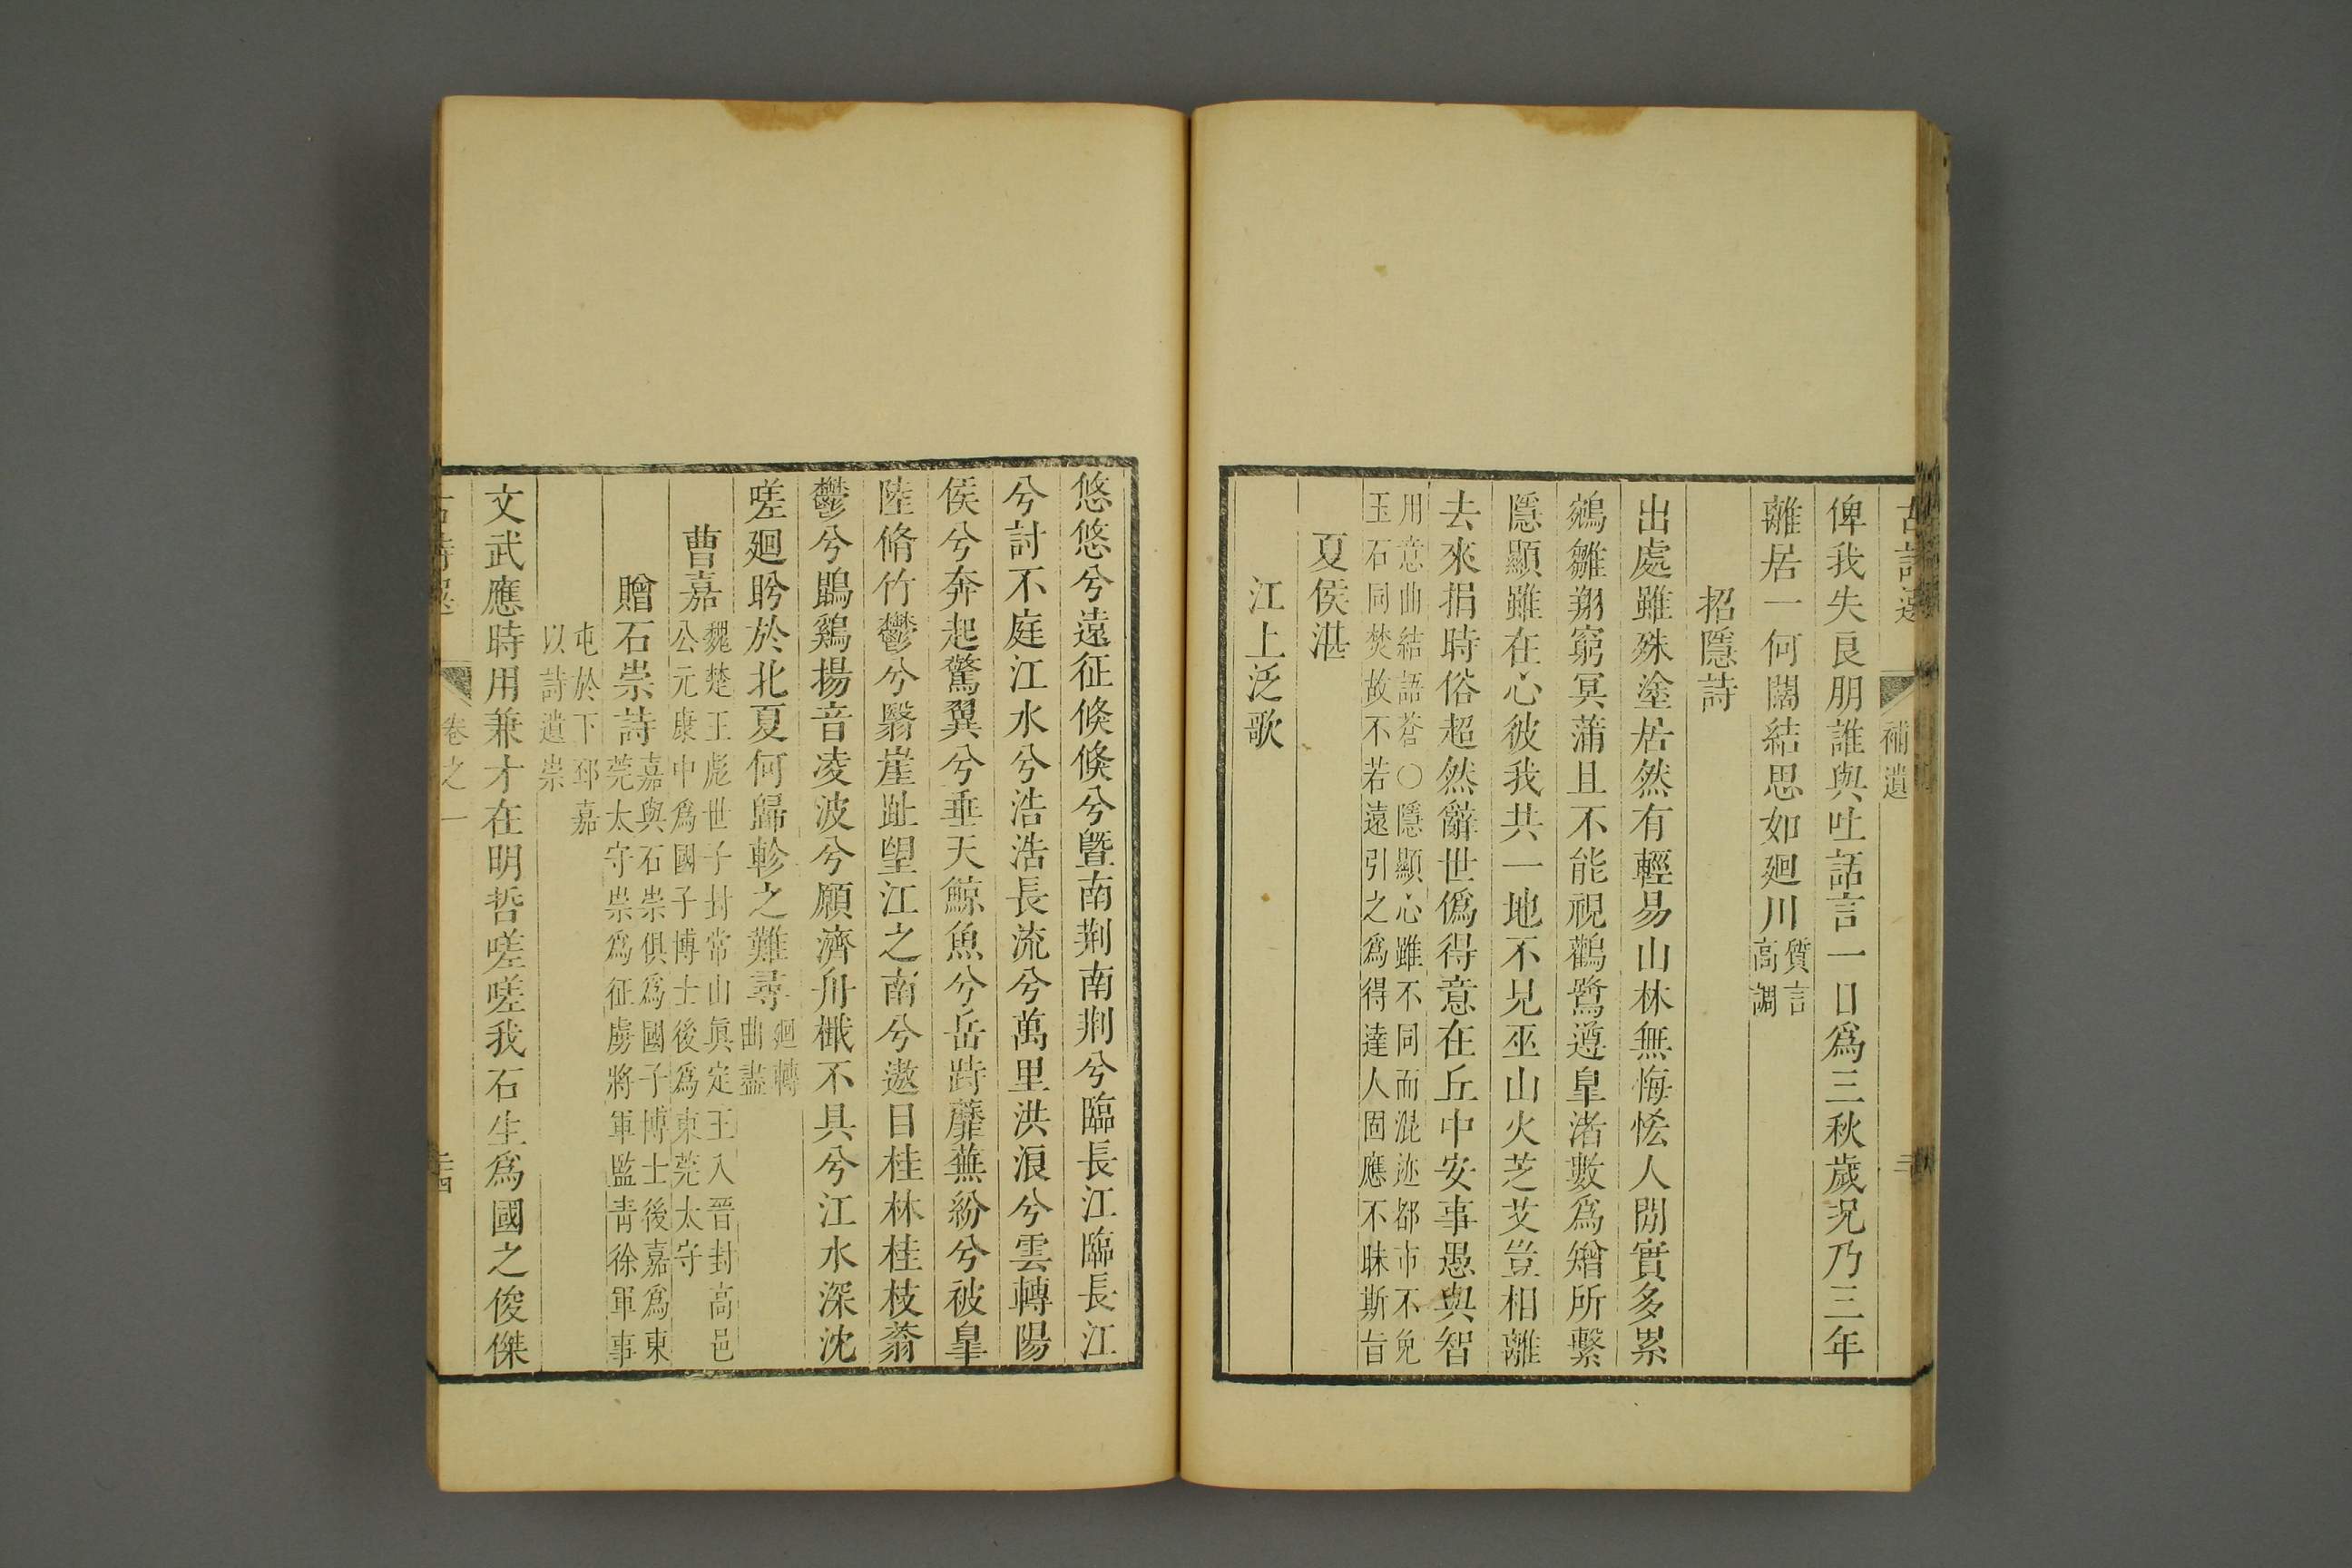 補遺
俾我失良朋誰與吐話言一日爲三秋歲況乃三年
離居一何闊結思如廻川質言高調
招隱詩
出處雖殊塗居然有輕易山林無悔恡人閒實多累
鵷雛翔窮冥蒲且不能視鸛鷺遵皐渚數爲矰所繫
隱顯雖在心彼我共一地不見巫山火芝艾豈相離
去來捐時俗超然辭世僞得意在丘中安事愚與智
用意曲結語蒼○隱顯心雖不同而混迹都市不免
玉石同焚故不若遠引之爲得達人固應不昧斯旨
夏侯湛
江上泛歌
悠悠兮遠征倏倏兮曁南荆南荆兮臨長江臨長江
兮討不庭江水兮浩浩長流兮萬里洪浪兮雲轉陽
侯兮奔起驚翼兮垂天鯨魚兮岳跱蘼蕪紛兮被皐
陸脩竹鬱兮翳崖趾望江之南兮遨目桂林桂枝蓊
鬱兮鵾鷄揚音凌波兮願濟舟檝不具兮江水深沈
嗟廻盻於北夏何歸軫之難尋廻轉曲盡
曹嘉魏楚王彪世子封常山眞定王入晉封高邑
公元康中爲國子博士後爲東莞太守
贈石崇詩嘉與石崇俱爲國子博士後嘉爲東
莞太守崇爲征虜將軍監靑徐軍事
屯於下邳嘉
以詩遺崇
文武應時用兼才在明哲嗟嗟我石生爲國之俊傑
卷之一